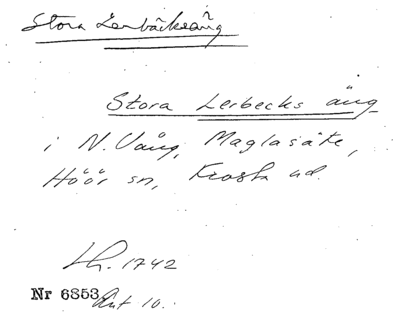 Stora Lerbäcksäng
Stora Lerbecks äng
i N. Vång, Maglasäte,
Höör sn, Frosta hd.
Lh. 1742
Nr 6853 Akt 10.